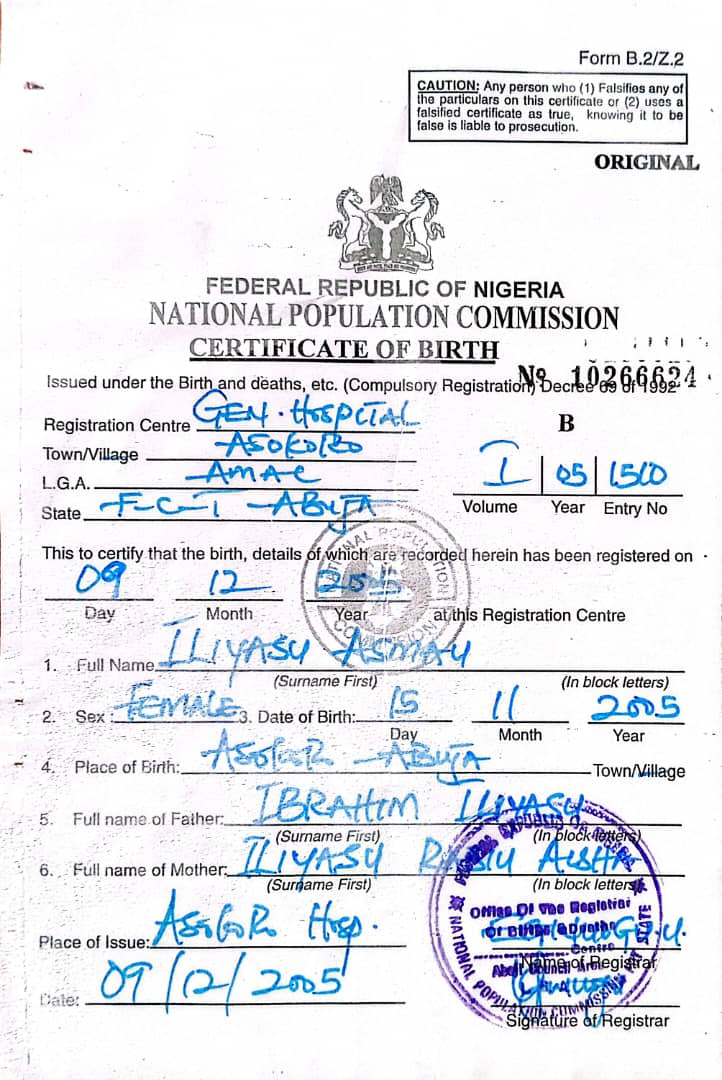 Form B.2/Z.2
CAUTION: Any person who (1) Falsifies any of
the particulars on this certificate or (2) uses a
falsified certificate as true, knowing it to be
false is liable to prosecution.
ORIGINAL
FEDERAL REPUBLIC OF NIGERIA
NATIONAL POPULATION COMMISSION
CERTIFICATE OF BIRTH
№ 10266624
Issued under the Birth and deaths, etc. (Compulsory Registration) Decree 69 of 1992
Registration Centre GEN. HOSPITAL
B
Town/Village ASOKORO
L.G.A. AMAC
I 05 1510
State F-C-T ABUJA
Volume Year Entry No
NATIONAL POPULATION COMMISSION
This to certify that the birth, details of which are recorded herein has been registered on
09 12 2005
Day Month Year at this Registration Centre
1. Full Name ILIYASU ASMAU
(Surname First) (In block letters)
2. Sex: FEMALE 3. Date of Birth: 15 11 2005
Day Month Year
4. Place of Birth: ASOKORO ABUJA Town/Village
5. Full name of Father: IBRAHIM ILIYASU
(Surname First) (In block letters)
6. Full name of Mother: ILIYASU RABIU AISHA
(Surname First) (In block letters)
Office Of The Registrar
Of Births & Deaths
Centre
NATIONAL POPULATION COMMISSION STATE
Place of Issue: ASOKORO HOSP.
Name of Registrar
Date: 09/12/2005
Signature of Registrar